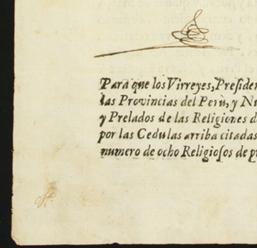 Para que los Virreyes, Presiden
las Provincias del Perù, y Nu
y Prelados de las Religiones d
por las Cedulas arriba citadas
numero de ocho Religiosos de p